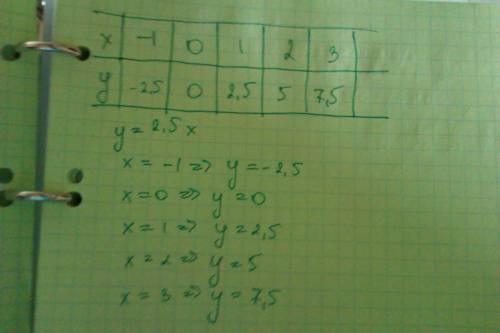 x -1 0 1 2 3
y -2,5 0 2,5 5 7,5
y = 2,5 x
x = -1 => y = -2,5
x = 0 => y = 0
x = 1 => y = 2,5
x = 2 => y = 5
x = 3 => y = 7,5